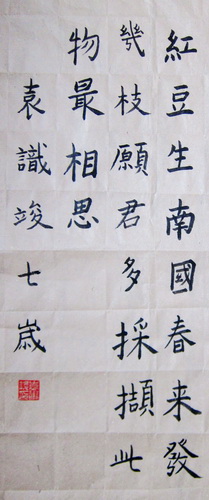 紅豆生南國春来發
幾枝願君多採擷此
物最相思
袁識竣七歲